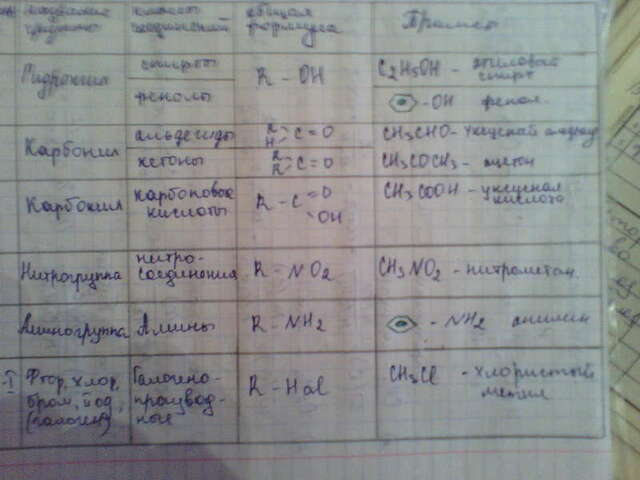 название группы
классы соединений
общая формула
Пример
Гидроксил
спирты
R - OH
C2H5OH - этиловый спирт
фенолы
-OH фенол
Карбонил
альдегиды
R H C = O
CH3CHO - уксусный альдегид
кетоны
R R C = O
CH3COCH3 - ацетон
Карбоксил
карбоновые кислоты
R - C = O OH
CH3COOH - уксусная кислота
Нитрогруппа
нитро-
соединения
R - NO2
CH3NO2 - нитрометан
Аминогруппа
Амины
R - NH2
- NH2 анилин
-I
Фтор, хлор,
бром, йод,
(галоген)
Галогено-
производ-
ные
R - Hal
CH3Cl - хлористый
метил